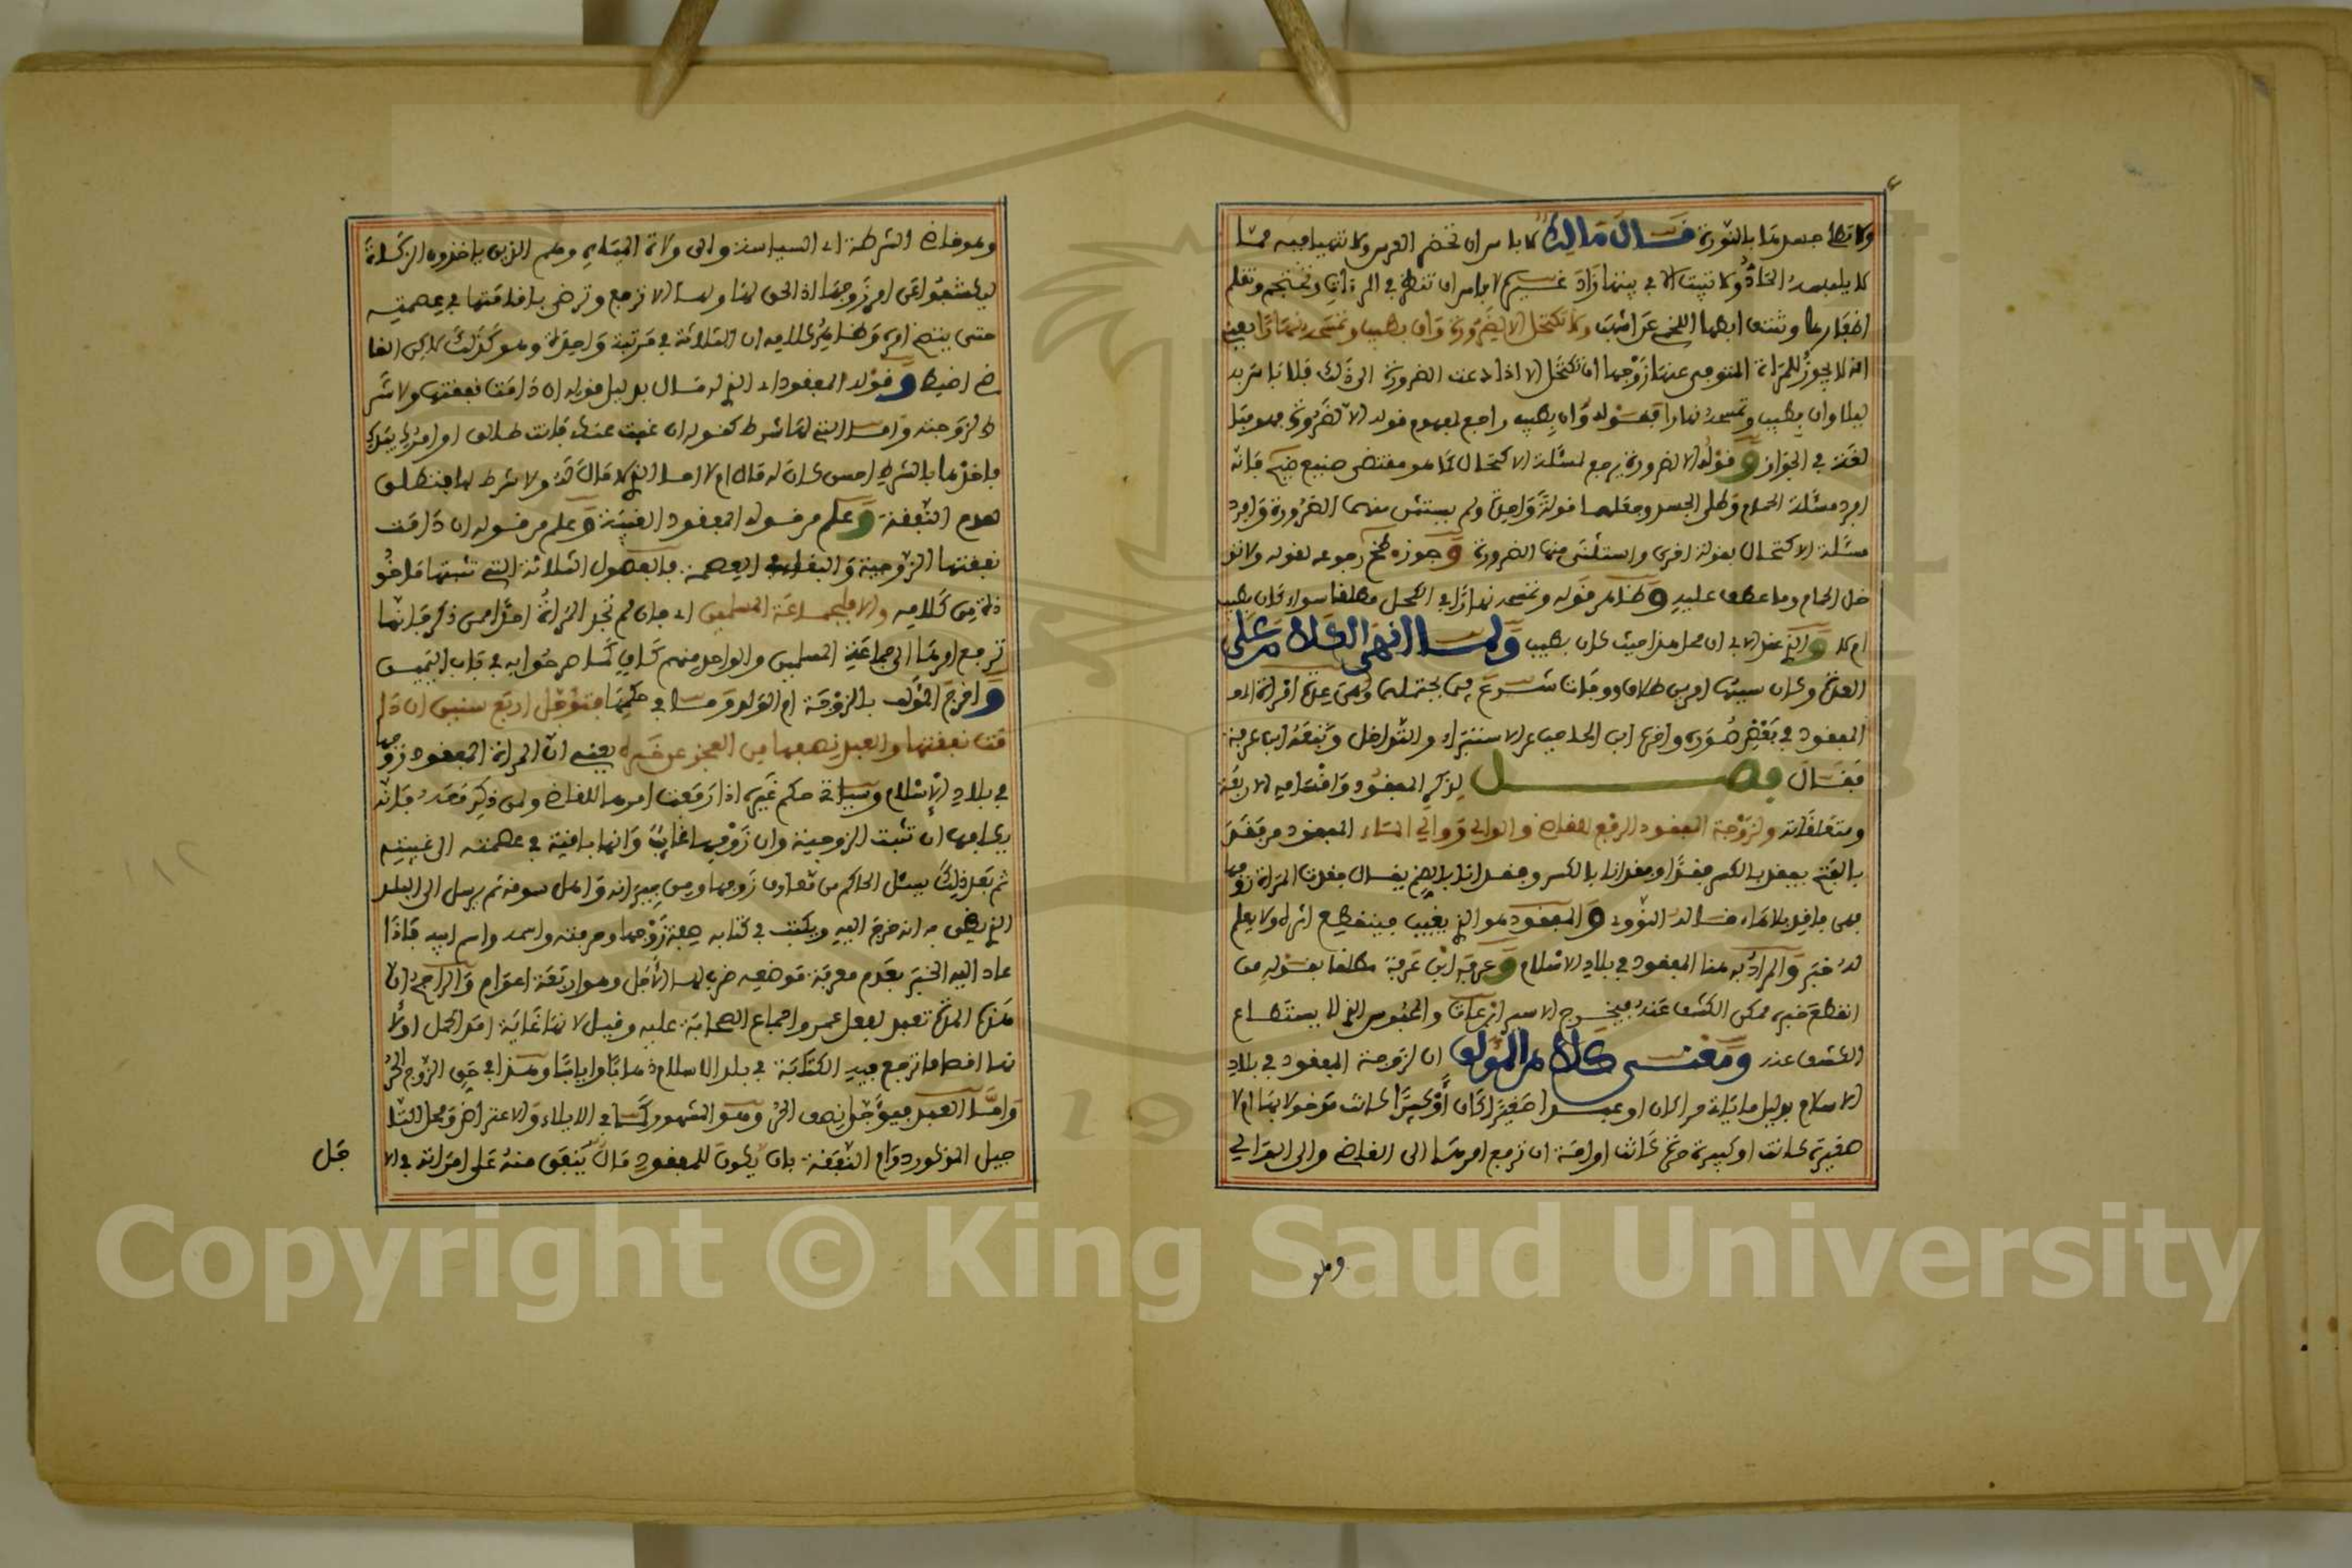 ولا تطلى جسدها بالنورة قال مالك لا باس ان تحضر العرس ولا تتهيا فيه بما
لا يلبسه الحاد ولا تبيت الا في بيتها زاد غيره لا باس ان تنظر في المرءات وتحتجم وتقلم
اظفارها وتنتف ابطها اللخمي عن اشهب ولا تكتحل الا لضرورة وان بطيب وتمسحه نهارا يعني
انه لا يجوز للمراة المتوفى عنها زوجها ان تكتحل الا اذا دعت الضرورة الى ذلك فلا باس به
ليلا وان بطيب وتمسحه نهارا فقوله وان بطيب راجع لمفهوم قوله الا لضرورة فهو مبالغة
لغة في الجواز وقوله الا لضرورة يرجع لمسئلة الاكتحال كما هو مقتضى صنيع فانه
افرد مسئلة الحمام وطلي الجسد وجعلهما قولة واحدة ولم يستثن منهما الضرورة وافرد
مسئلة الاكتحال بقولة اخرى واستثنى منها الضرورة وجوز رجوعه لقوله ولا تد
خل الحمام وما عطف عليه وظاهر قوله وتمسحه نهارا اي الكحل مطلقا سواء كان بطيب
ام لا والذي لابي ان محل هذا حيث كان بطيب ولما انهى الكلام على
العدة وكان سببها امرين طلاق ووفاة شرع فيما يحتملهما وهي عدة امراة
المفقود في بعض صوره واخرها ابن الحاجب عن الاستبراء والتداخل وتبعه ابن عرفة
فقال فصل لذكر المفقود واقسامه الاربعة
ومتعلقاته ولزوجة المفقود الرفع للقاضي والوالي ووالي الماء المفقود من فقد
بالفتح يفقد بالكسر فقدا وفقدانا بالكسر وفقدانا بالضم يقال فقدت المراة زوجها
فهي فاقد بلا هاء قاله النووي والمفقود هو الذي يغيب فينقطع اثره ولا يعلم
له خبر والمراد به هنا المفقود في بلاد الاسلام وعرفه ابن عرفة مطلقا بقوله من
انقطع خبره ممكن الكشف عنه فيخرج الاسير ابن عات والمحبوس الذي لا يستطاع
الكشف عنه ومعنى كلام المؤلف ان لزوجة المفقود في بلاد
الاسلام بدليل ما ياتي حرا كان او عبدا صغيرا كان او كبيرا كانت مدخولا بها ام لا
صغيرة كانت او كبيرة حرة كانت او امة ان ترفع امرها الى القاضي والى الوالي
وهو
وهو قاضي الشرطة اي السياسة والى ولاة المياه وهم الذين ياخذون الزكاة
ليكشفوا عن امر زوجها اذ الحق لها ولها الا ترفع وترضى باقامتها في عصمته
حتى يتضح امره وظاهر كلامه ان الثلاثة في مرتبة واحدة وهو كذلك لكن القا
ضي اضبط وقوله المفقود اي الذي له مال بدليل قوله ان دامت نفقتها ولا شر
ط لزوجته واما التي لها شرط كقوله ان غبت عنك فانت طالق او امرك بيدك
فاخذها بالشرط احسن كان له مال ام لا اما الذي لا مال له ولا شرط لها فتطلق
لعدم النفقة وعلم من قوله المفقود الغيبة وعلم من قوله ان دامت
نفقتها الزوجية والبقاء في العصمة فالفصول الثلاثة التي تثبتها ماخو
ذة من كلامه والا فلجماعة المسلمين اي فان لم تجد المراة احدا ممن ذكر فانها
ترفع امرها الى جماعة المسلمين والواحد منهم كاف كما صرحوا به في
وافرد المؤلف بالزوجة ام الولد في حكمها فتؤجل اربع سنين ان دا
مت نفقتها والعبد نصفها من العجز عن خبره يعني ان المراة المفقود زوجها
في بلاد الاسلام وسياتي حكم غيره اذا رفعت امرها للقاضي ولمن ذكر معه فانه
يكلفها ان تثبت الزوجية وان زوجها غائب وانها باقية في عصمته الى غيبته
ثم بعد ذلك يسئل الحاكم من معارف زوجها ومن جيرانه واهل سوقه ثم يرسل الى البلد
الذي يظن به انه خرج اليه ويكتب في كتابه صفة زوجها وحرفته واسمه واسم ابيه فاذا
عاد اليه الخبر بعدم معرفة موضعه ضرب لها الاجل وهو اربعة اعوام والراجح ان
هذه المدة تعبد لفعل عمر واجماع الصحابة عليه وقيل لانها غاية امد الحمل اولا
نها اقصى ما ترجع فيه المكاتبة في بلد الاسلام ذهابا وايابا وهذا في حق الزوج الحر
واما العبد فيؤجل نصف الحر وهو المشهور كما في الايلاء والاعتراض ومحل التا
جيل المذكور دوام النفقة بان يكون للمفقود مال ينفق منه على امراته في الا
جل
Copyright © King Saud University